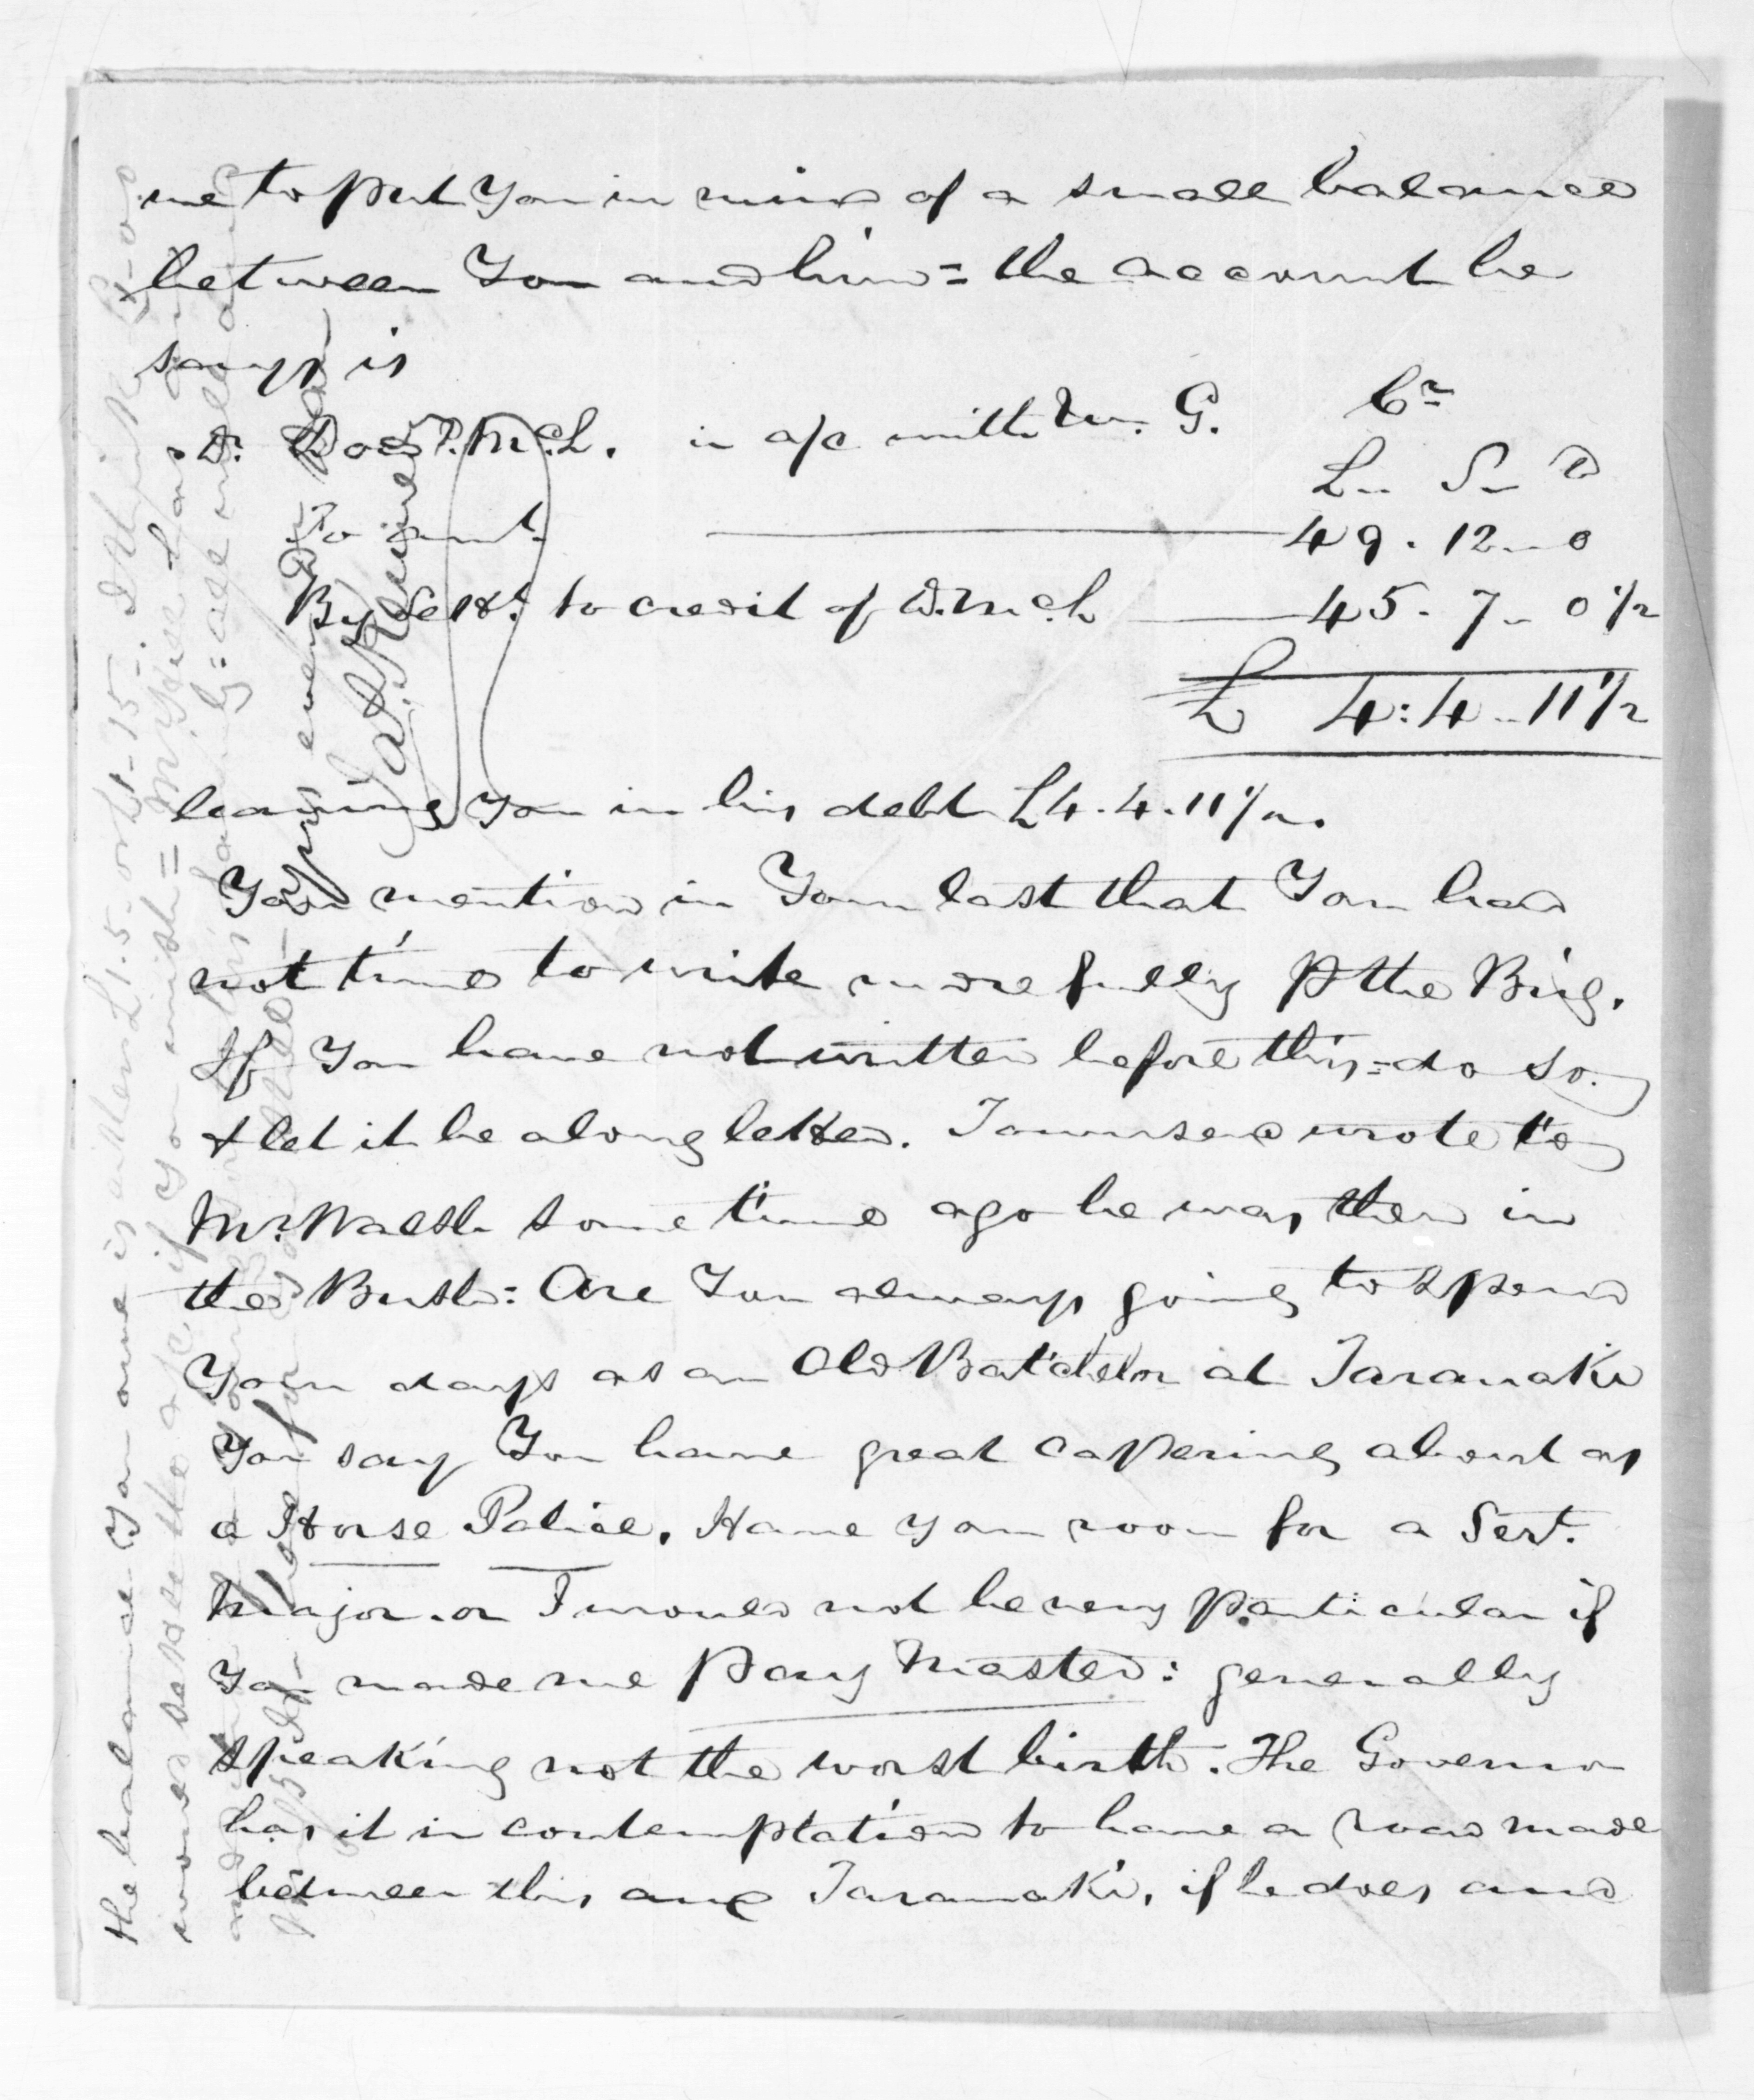 me to put You in mind of a small balance
between You and him = the account he
says is
Dr. Doct. McL. in a/c with Wm. G. Cr
L.. S.. D
To amt. 49 . 12 .. 0
By Sett. to credit of D. McL 45 . 7 .. 0 1/2
£ 4 : 4 .. 11 1/2
leaving You in his debt £4 . 4 . 11 1/2.
You mention in Your last that You had
not time to write more fully P the Brig.
If You have not written before this = do so.
& let it be a long letter. Townsend wrote to
Mr. Walsh some time ago he was then in
the Bush: Are You always going to spend
Your days as an Old Batchelor at Taranaki
You say You have great capering about as
a Horse Police. Have you room for a Sert.
Major. or I would not be very particular if
You made me Pay Master: generally
speaking not the worst birth. The Governor
has it in contemplation to have a road made
between this and Taranaki, if he does and
the balance You owe is either £1 . 5 . or £1 - 15 -. I think
would settle the a/c if You wish =